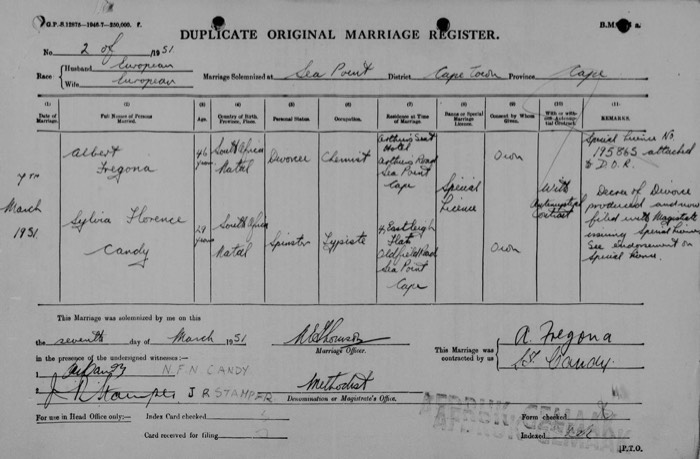 G.P.-S.12875—1946-7—250,000. F.
B.M.
DUPLICATE ORIGINAL MARRIAGE REGISTER.
No. 2 of 1951
Race Husband European
Wife European
Marriage Solemnized at Sea Point District Cape Town Province Cape
(1) (2) (3) (4) (5) (6) (7) (8) (9) (10) (11)
Date of Marriage. Full Names of Persons Married. Age. Country of Birth, Province, Place. Personal Status. Occupation. Residence at Time of Marriage. Banns or Special Marriage Licence. Consent by Whom Given. With or without Antenuptial Contract. REMARKS.
7th March 1951
Albert Fregona
46 years
South Africa Natal
Divorcee
Chemist
Arthur's Seat Hotel Arthur's Road Sea Point Cape
Special Licence
Own
With Antenuptial Contract
Special Licence No 195865 attached to D.O.R.
Decree of Divorce produced and now filed with Magistrate issuing Special Licence See endorsement on Special Licence.
Sylvia Florence Candy
29 years
South Africa Natal
Spinster
Typiste
4, Eastleigh Flats Oldfield Road Sea Point Cape
Own
This Marriage was solemnized by me on this
the seventh day of March 1951
in the presence of the undersigned witnesses:—
1. N.F.N CANDY
2. J R Stamper J R STAMPER
Marriage Officer.
Methodist
Denomination or Magistrate's Office.
This Marriage was contracted by us
A. Fregona
S.F. Candy.
For use in Head Office only:—
Index Card checked
Card received for filing
AFDRUK GEMAAK
AFDRUK GEMAAK
Form checked
Indexed
P.T.O.